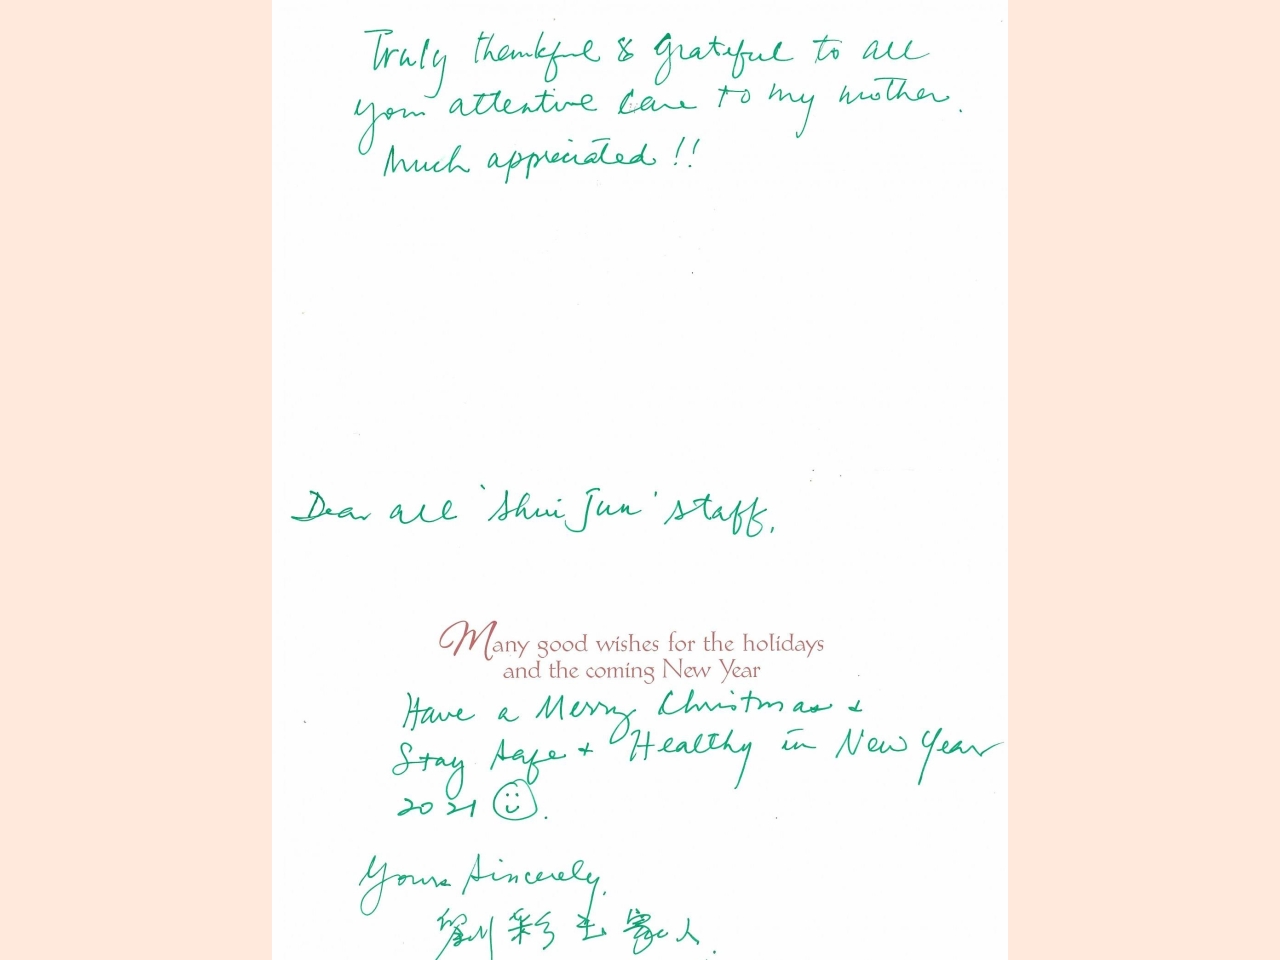 Truly thankful & grateful to all
your attentive care to my mother.
Much appreciated !!
Dear all 'Shui Jun' staff,
Many good wishes for the holidays
and the coming New Year
Have a Merry Christmas &
Stay safe + Healthy in New Year
2021 ☺.
Yours Sincerely,
劉彩玉家人.